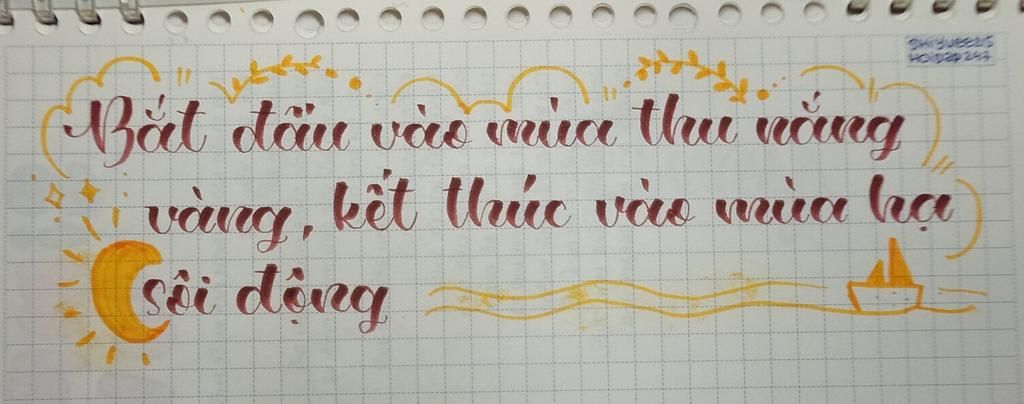 SHIYUBEBIS
Hoidap247
Bắt đầu vào mùa thu nắng
vàng, kết thúc vào mùa hạ
sôi động